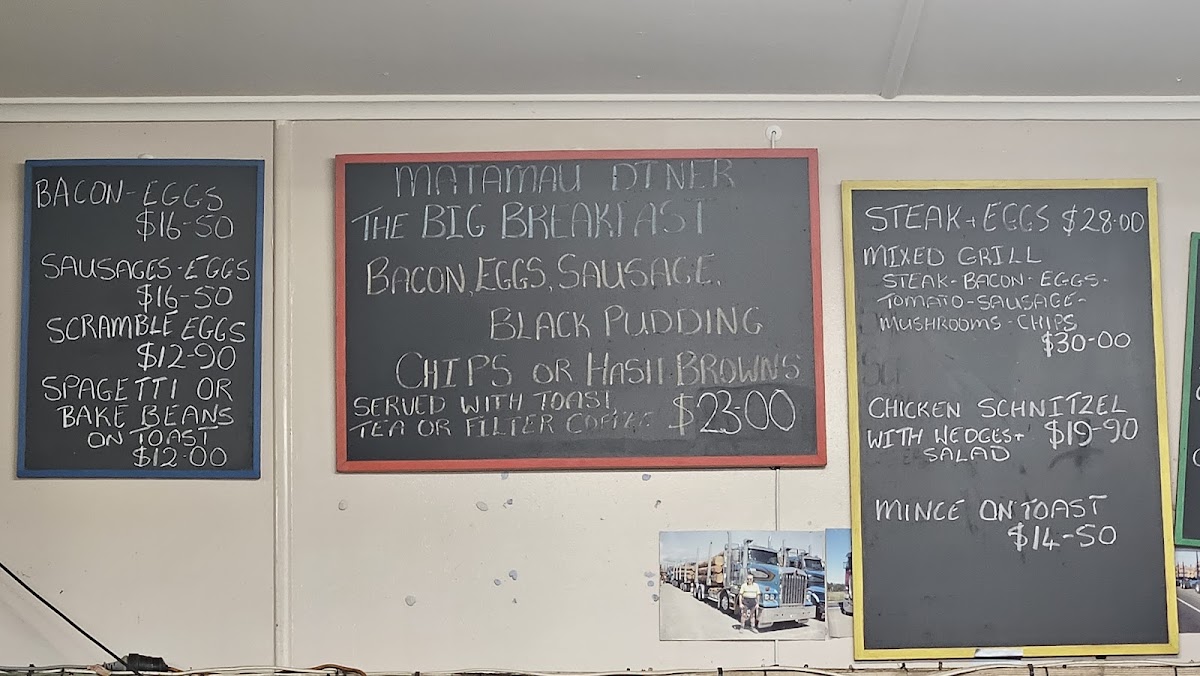 BACON-EGGS
$16-50
SAUSAGES-EGGS
$16-50
SCRAMBLE EGGS
$12-90
SPAGETTI OR
BAKE BEANS
ON TOAST
$12-00
MATAMAU DINER
THE BIG BREAKFAST
BACON, EGGS, SAUSAGE,
BLACK PUDDING
CHIPS OR HASH BROWNS
SERVED WITH TOAST
TEA OR FILTER COFFEE $23-00
STEAK + EGGS $28-00
MIXED GRILL
STEAK-BACON-EGGS-
TOMATO-SAUSAGE-
MUSHROOMS-CHIPS
$30-00
CHICKEN SCHNITZEL
WITH WEDGES + $19-90
SALAD
MINCE ON TOAST
$14-50